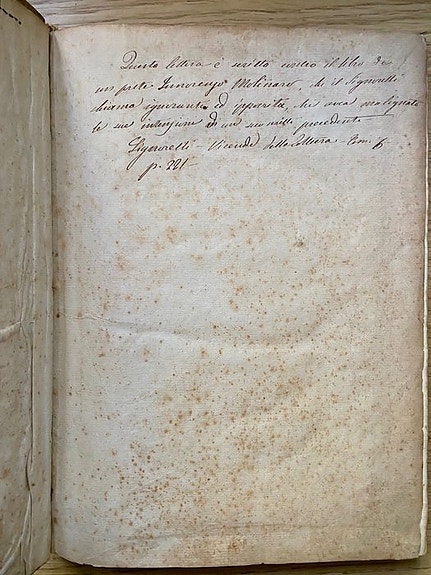 Questa lettera è scritta contro il libro di
un prete Innocenzo Molinaro, che il Signorelli
chiama ignorante ed ipocrita, che avea malignato
le sue intenzioni di un suo scritto precedente
Signorelli Vicende della Coltura - Tom.
p. 221